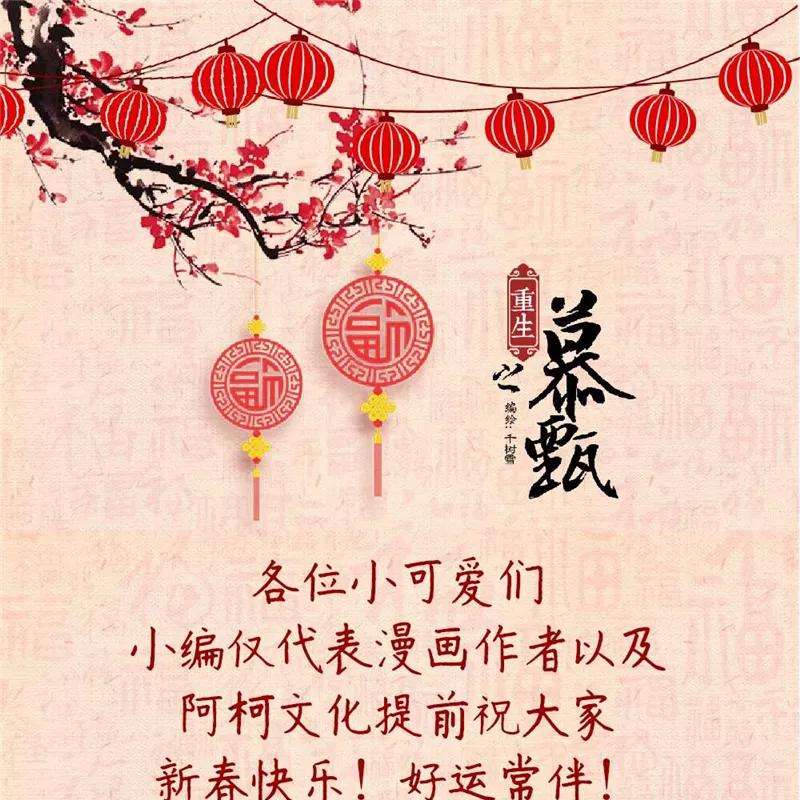 重生
之
慕甄
编绘：千树雪
各位小可爱们
小编仅代表漫画作者以及
阿柯文化提前祝大家
新春快乐！好运常伴！